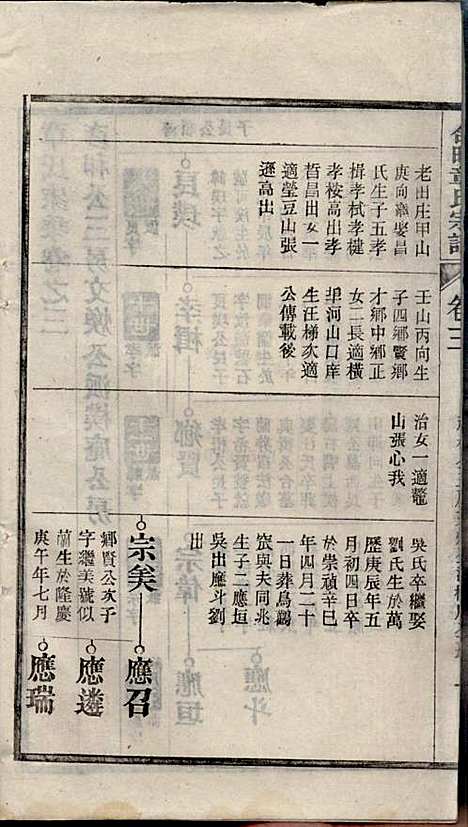 老田庄甲山
庚向繼娶昌
氏生子五孝
揖孝栻孝楗
孝桉高出孝
晳昌出女一
適瑩豆山張
遜高出
壬山丙向生
子四鄉賢鄉
才鄉中鄉正
女二長適橫
埠河山口庠
生汪梯次適
公傳載後
治女一適鼇
山張心我
吳氏卒繼娶
劉氏生於萬
歷庚辰年五
月初四日卒
於崇禎辛巳
年四月二十
一日葬烏鷂
宸與夫同兆
生子二應垣
吳出應斗劉
出
宗美
鄉賢公次子
字繼美號似
蘭生於隆慶
庚午年七月
應召
應遴
應瑞
氏宗譜
卷三